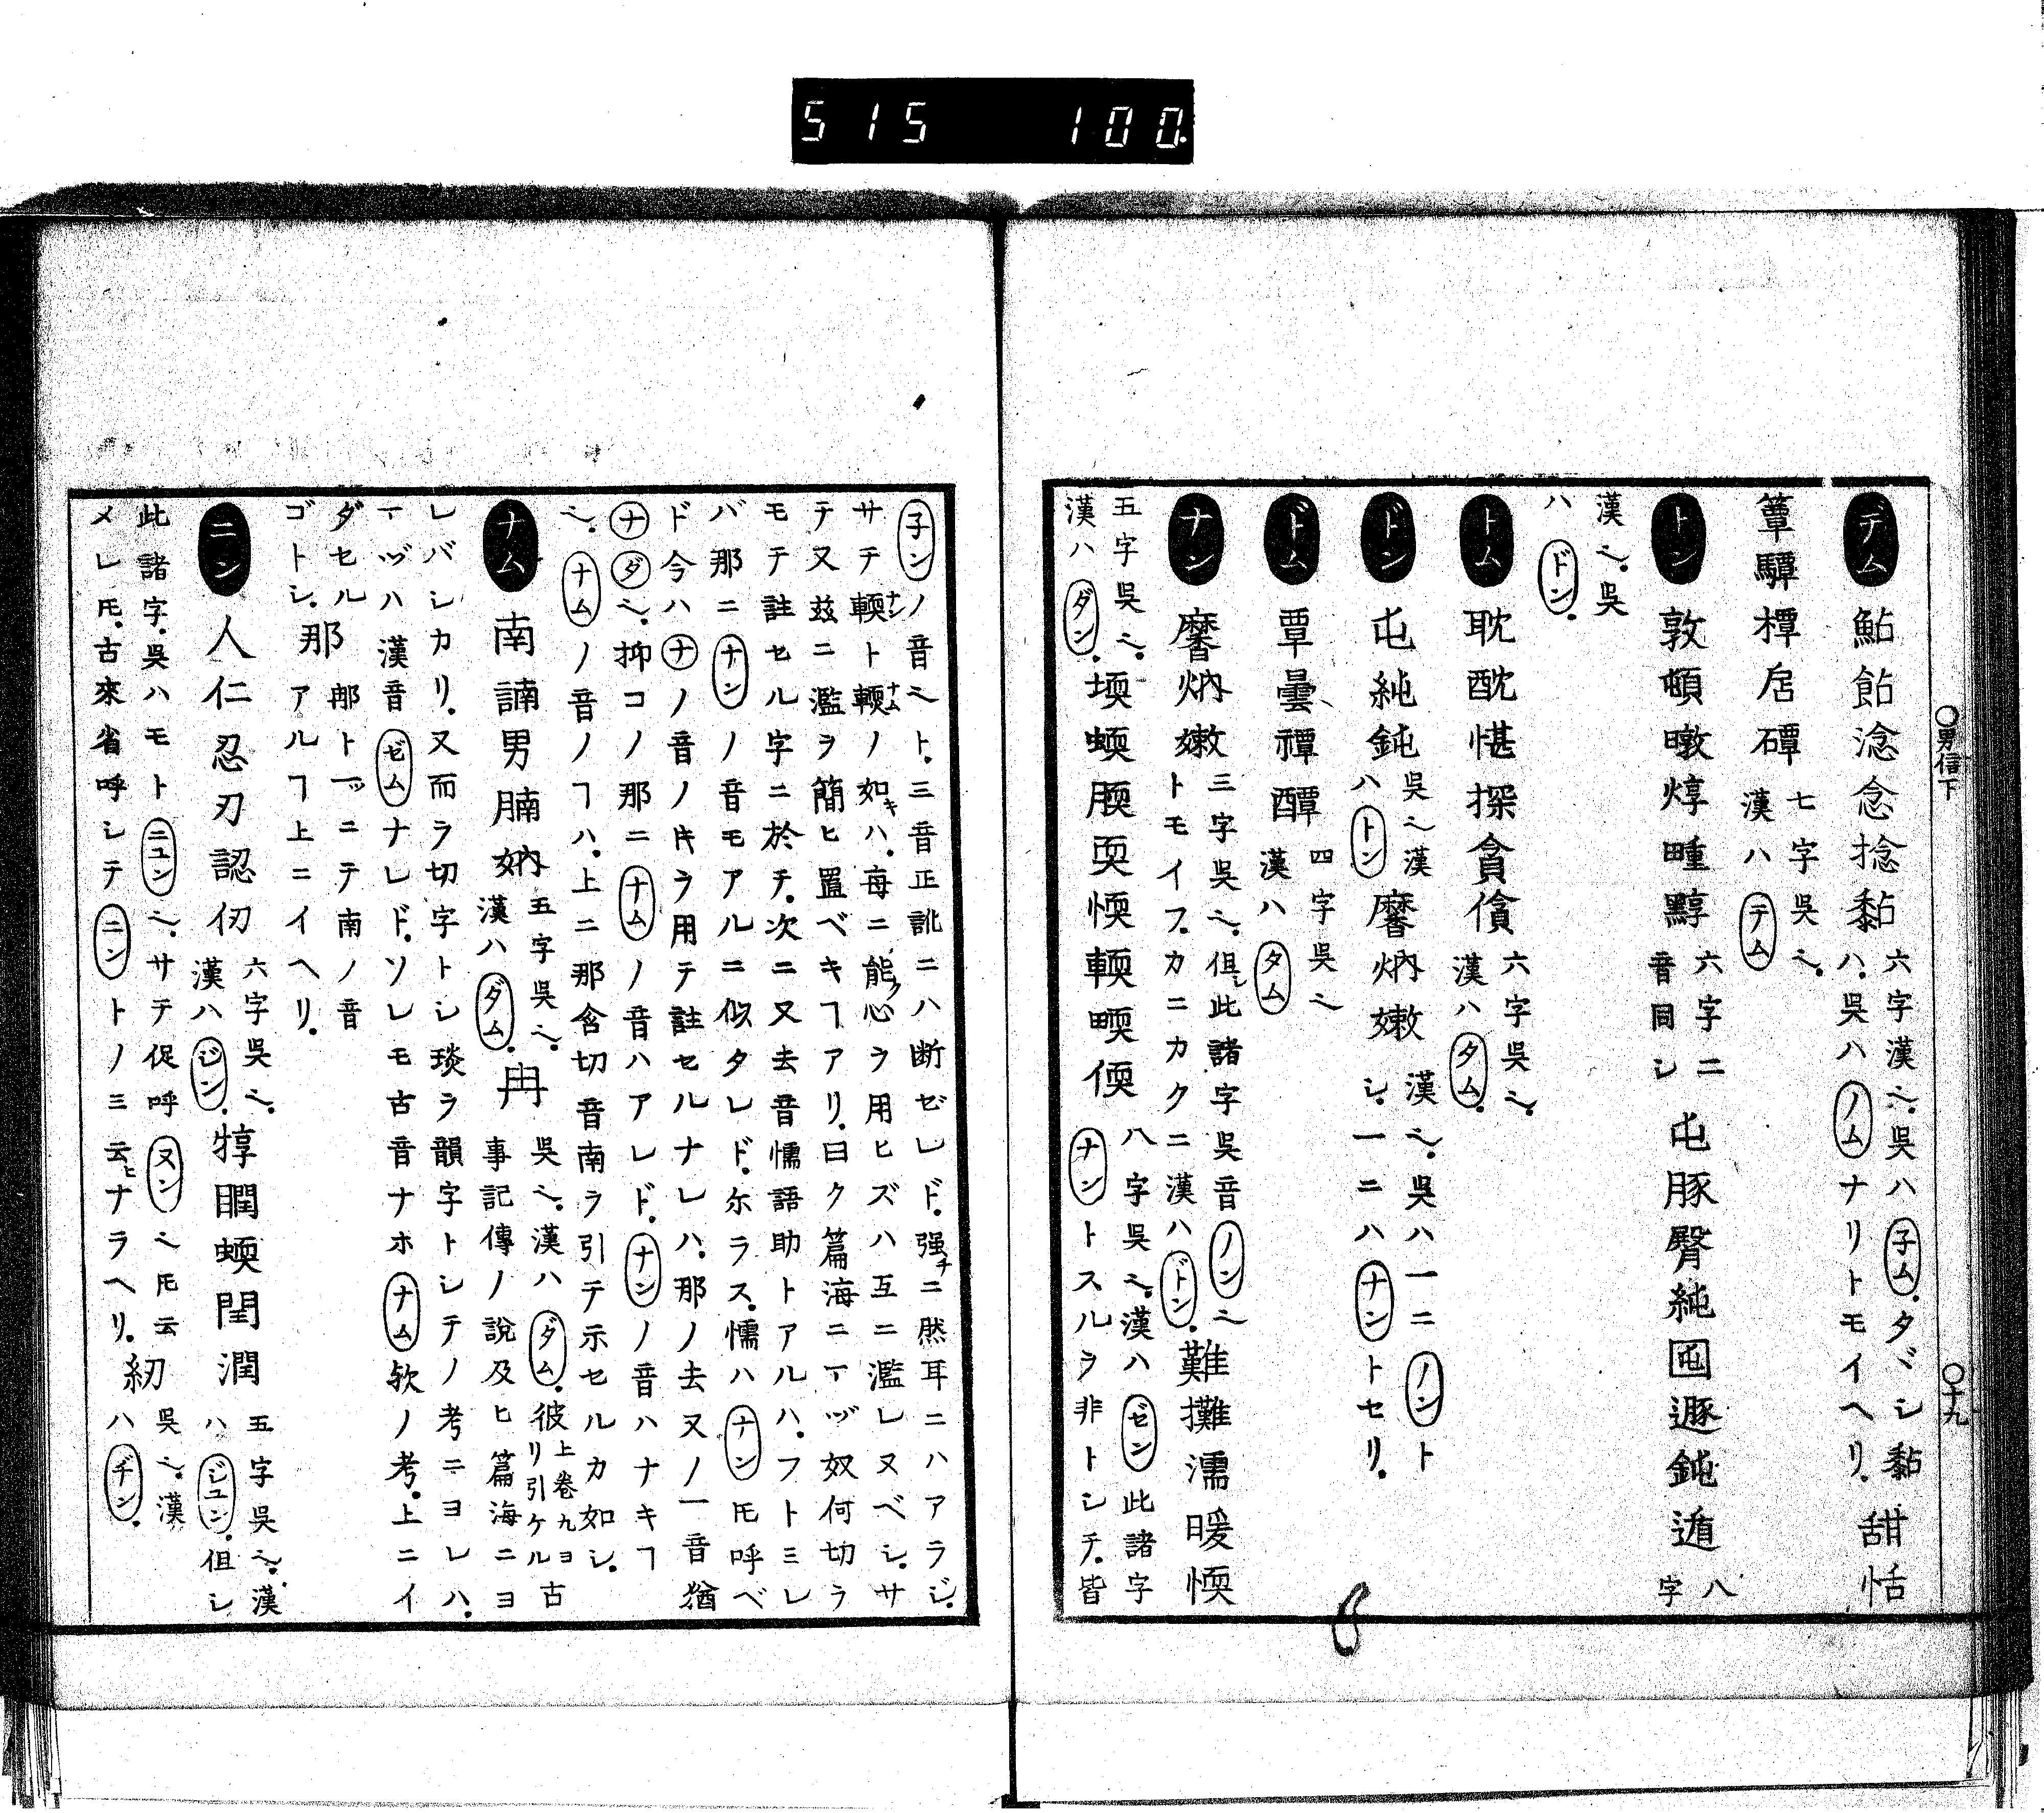 515 100
○男信下
○十九
デム 鮎 飴 淰 念 捻 黏 六字漢ヘ。吳ハ子ム。タヾシ黏ハ。吳ハノムナリトモイヘリ。 甜 恬
簟 驔 橝 磹 七字吳ヘ。漢ハテム
トン 敦 頓 暾 焞 畽 黗 六字ニ音同シ 屯 豚 臀 純 囤 遯 鈍 遁 八字
漢ヘ。吳ハドン。
トム 耽 酖 愖 探 貪 僋 六字吳ヘ。漢ハタム。
ドン 屯 純 鈍 吳ヘ漢ハトン 黁 炳 嫩 漢ヘ。吳ハ一ニノントシ。一ニハナントセリ。
ドム 覃 曇 禫 醰 四字吳ヘ漢ハタム
ナン 黁 炳 嫩 三字吳ヘ。但シ此諸字吳音ノンヘトモイフ。カニカクニ漢ハドン。 難 攤 濡 暖 愞
五字吳ヘ。漢ハダン。 堧 蝡 腝 耎 愞 輭 畷 偄 八字吳ヘ。漢ハゼン此諸字ナントスルヲ非トシテ。皆
子ンノ音ヘト。三音正訛ニハ断ゼレド。强チニ然耳ニハアラジ。
サテ輭ナント輭ナムノ如キハ。每ニ能ク心ヲ用ヒズハ互ニ濫レヌベシ。サ
テ又玆ニ濫ヲ簡ヒ置ベキヿアリ。曰ク篇海ニ𪜈ヅ奴何切ヲ
モテ註セル字ニ於テ。次ニ又去音懦語助トアルハ。フトミレ
バ那ニナンノ音モアルニ似タレド。尓ラス。懦ハナン𪜈呼ベ
ド今ハナノ音ノキヲ用テ註セルナレハ。那ノ去又ノ一音猶
ナダヘ。抑コノ那ニナムノ音ハアレド。ナンノ音ハナキヿ
ヘ。ナムノ音ノヿハ。上ニ那含切音南ヲ引テ示セルカ如シ。
ナム 南 諵 男 腩 妠 五字吳ヘ。漢ハダム。 冉 吳ヘ。漢ハダム。彼上卷九ヨリ引ケル古事記傳ノ說及ヒ篇海ニヨ
レバシカリ。又而ヲ切字トシ琰ヲ韻字トシテノ考ニヨレハ。
𪜈ヅハ漢音ゼムナレド。ソレモ古音ナホナム欤ノ考。上ニイ
ダセルゴトシ。 那 郍ト一ツニテ南ノ音アルヿ上ニイヘリ。
ニン 人 仁 忍 刃 認 仞 六字吳ヘ。漢ハジン。 犉 瞤 蝡 閏 潤 五字吳ヘ。漢ハジユン。但シ
此諸字。吳ハモトニユンヘ。サテ促呼ヌンヘ𪜈云メレ𪜈。古來省呼シテニントノミ云ヒナラヘリ。 紉 吳ヘ。漢ハヂン。